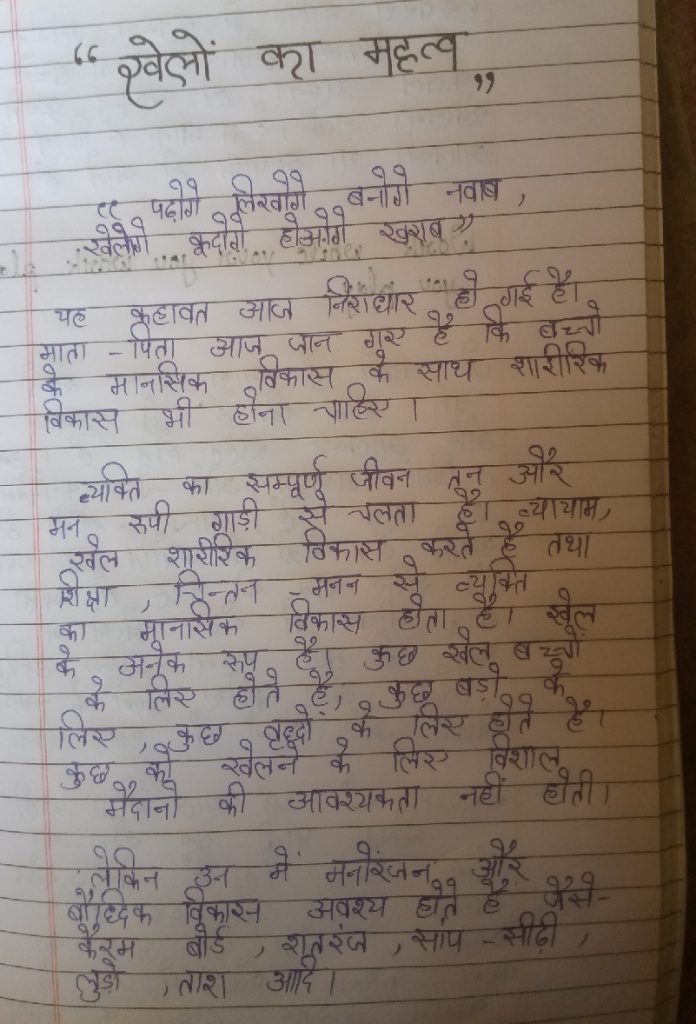 “ खेलों का महत्व ”
“ पढ़ोगे लिखोगे बनोगे नवाब ,
खेलोगे कूदोगे होओगे खराब ”
यह कहावत आज निराधार हो गई है।
माता - पिता आज जान गए है कि बच्चो
के मानसिक विकास के साथ शारीरिक
विकास भी होना चाहिए ।
व्यक्ति का सम्पूर्ण जीवन तन और
मन रूपी गाड़ी से चलता है। व्यायाम,
खेल शारीरिक विकास करते है तथा
शिक्षा , चिन्तन - मनन से व्यक्ति
का मानसिक विकास होता है। खेल
के अनेक रूप है। कुछ खेल बच्चो
के लिए होते है, कुछ बड़ो के
लिए , कुछ वृद्दो के लिए होते है।
कुछ को खेलने के लिए विशाल
मैदानो की आवश्यकता नहीं होती।
लेकिन उन में मनोरंजन और
बौद्दिक विकास अवश्य होते है जैसे-
कैरम बोर्ड , शतरंज , सांप - सीढ़ी ,
लुड़ो , ताश आदि।